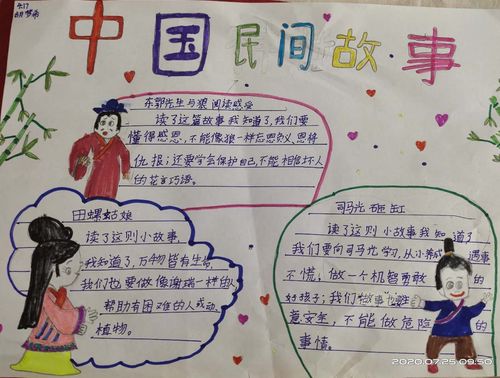 4.17
中国民间故事
东郭先生与狼阅读感受
读了这篇故事我知道了,我们要
懂得感恩,不能像狼一样忘恩负义、恩将
仇报;还要学会保护自己,不能相信坏人
的花言巧语。
田螺姑娘
读了这则小故事,
我知道了,万物皆有生命,
我们也要做像谢端一样的人
帮助有困难的人或动
植物。
司马光砸缸
读了这则小故事我知道了
我们要向司马光学习,从小养成遇事
不慌,做一个机智勇敢的
好孩子;我们做事也注
意安全,不能做危险的
事情。
2020.07.25 09:50